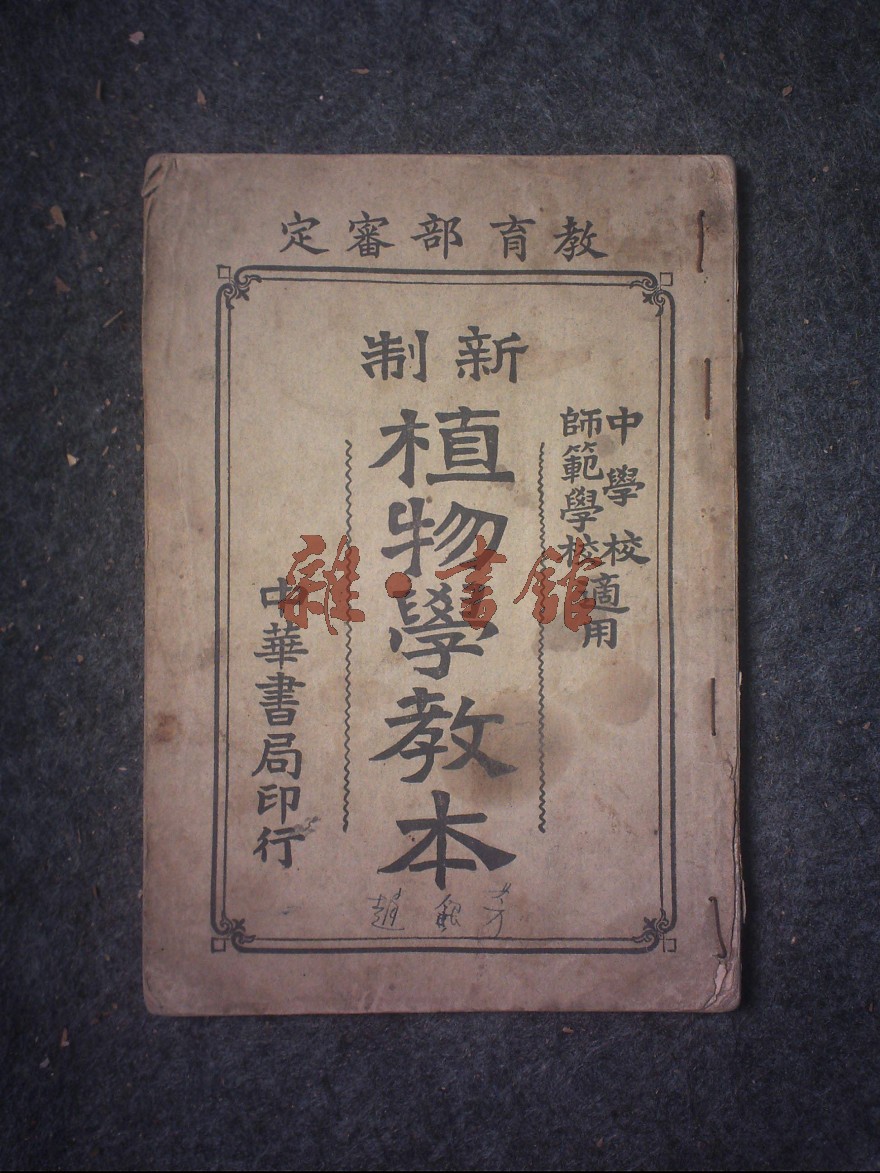 教育部審定
新制
中學校
師範學校
適用
植物學教本
中華書局印行
雜·書館